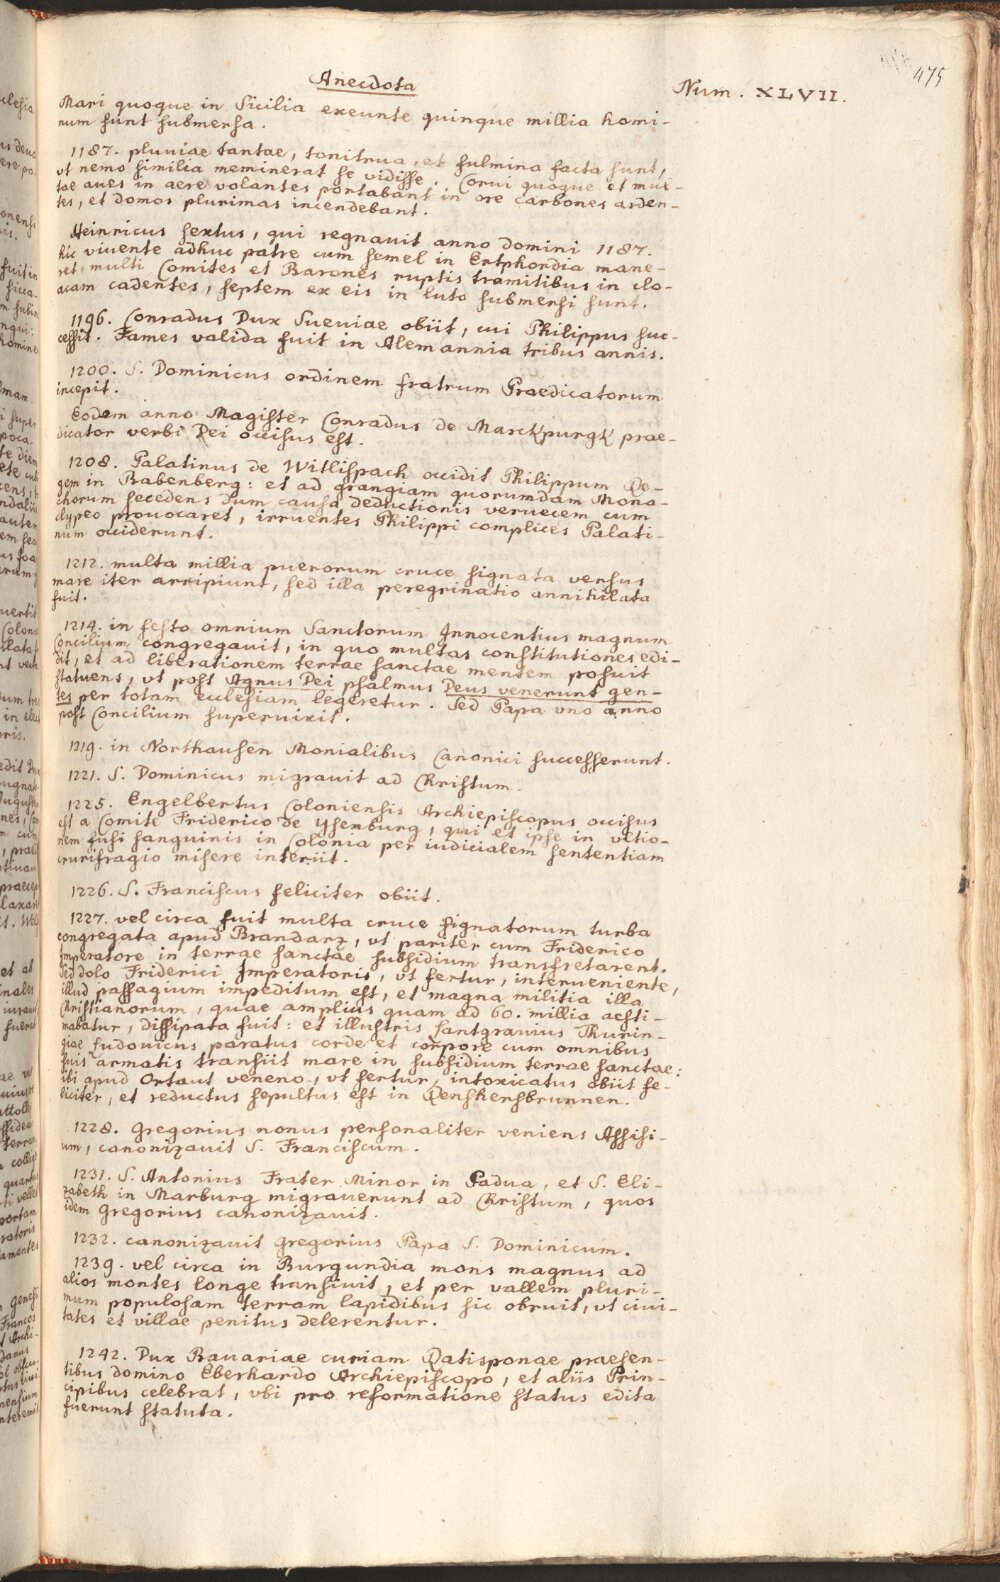 475
Anecdota
Num. XLVII.
Mari quoque in Sicilia exeunte quinque millia homi-
num sunt submersa.
1187. pluviae tantae, tonitrua, et fulmina facta sunt,
vt nemo similia meminerat se vidisse. Corvi quoque et mul-
tae aues in aere volantes portabant in ore carbones arden-
tes, et domos plurimas incendebant.
Heinricus sextus, qui regnauit anno domini 1187.
hic viuente adhuc patre cum semel in Ertphordia mane-
ret, multi Comites et Barones ruptis tramitibus in clo-
acam cadentes, septem ex eis in luto submersi sunt.
1196. Conradus Dux Sueviae obiit, cui Philippus suc-
cessit. Fames valida fuit in Alemannia tribus annis.
1200. S. Dominicus ordinem fratrum Praedicatorum
incepit.
Eodem anno Magister Conradus de Marckpurgk prae-
dicator verbi Dei occisus est.
1208. Palatinus de Witlispach occidit Philippum Re-
gem in Babenberg: et ad grangiam quorumdam Mona-
chorum secedens dum causa deductionis veruecem cum
clypeo prouocaret, irruentes Philippi complices Palati-
num occiderunt.
1212. multa millia puerorum cruce signata versus
mare iter arripiunt, sed illa peregrinatio annihilata
fuit.
1214. in festo omnium Sanctorum Innocentius magnum
Concilium congregauit, in quo multas constitutiones edi-
dit, et ad liberationem terrae sanctae mentem posuit
statuens, vt post Agnus Dei psalmus Deus venerunt gen-
tes per totam ecclesiam legeretur. Sed Papa vno anno
post Concilium superuixit.
1219. in Northausen Monialibus Canonici successerunt.
1221. S. Dominicus migrauit ad Christum.
1225. Engelbertus Coloniensis Archiepiscopus occisus
est a Comite Friderico de Ysenburg, qui et ipse in vltio-
nem fusi sanguinis in Colonia per iudicialem sententiam
crurifragio misere interiit.
1226. S. Franciscus feliciter obiit.
1227. vel circa fuit multa cruce signatorum turba
congregata apud Brandarz, vt pariter cum Friderico
Imperatore in terrae sanctae subsidium transfretarent.
Sed dolo Friderici Imperatoris, vt fertur, interueniente,
illud passagium impeditum est, et magna militia illa
Christianorum, quae amplius quam ad 60. millia aesti-
mabatur, dissipata fuit: et illustris Lantgravius Thurin-
giae Ludovicus paratus corde et corpore cum omnibus
suis armatis transiit mare in subsidium terrae sanctae:
ibi apud Ortaut veneno, vt fertur, intoxicatus obiit fe-
liciter, et reductus sepultus est in Renshersbrunnen.
1228. Gregorius nonus personaliter veniens Assisi-
um, canonizauit S. Franciscum.
1231. S. Antonius Frater Minor in Padua, et S. Eli-
zabeth in Marburg migrauerunt ad Christum, quos
idem Gregorius canonizauit.
1232. canonizauit Gregorius Papa S. Dominicum.
1239. vel circa in Burgundia mons magnus ad
alios montes longe transiuit, et per vallem pluri-
mum populosam terram lapidibus sic obruit, vt ciui-
tates et villae penitus delerentur.
1242. Dux Bauariae curiam Ratisponae praesen-
tibus domino Eberhardo Archiepiscopo, et aliis Prin-
cipibus celebrat, vbi pro reformatione status edita
fuerunt statuta.